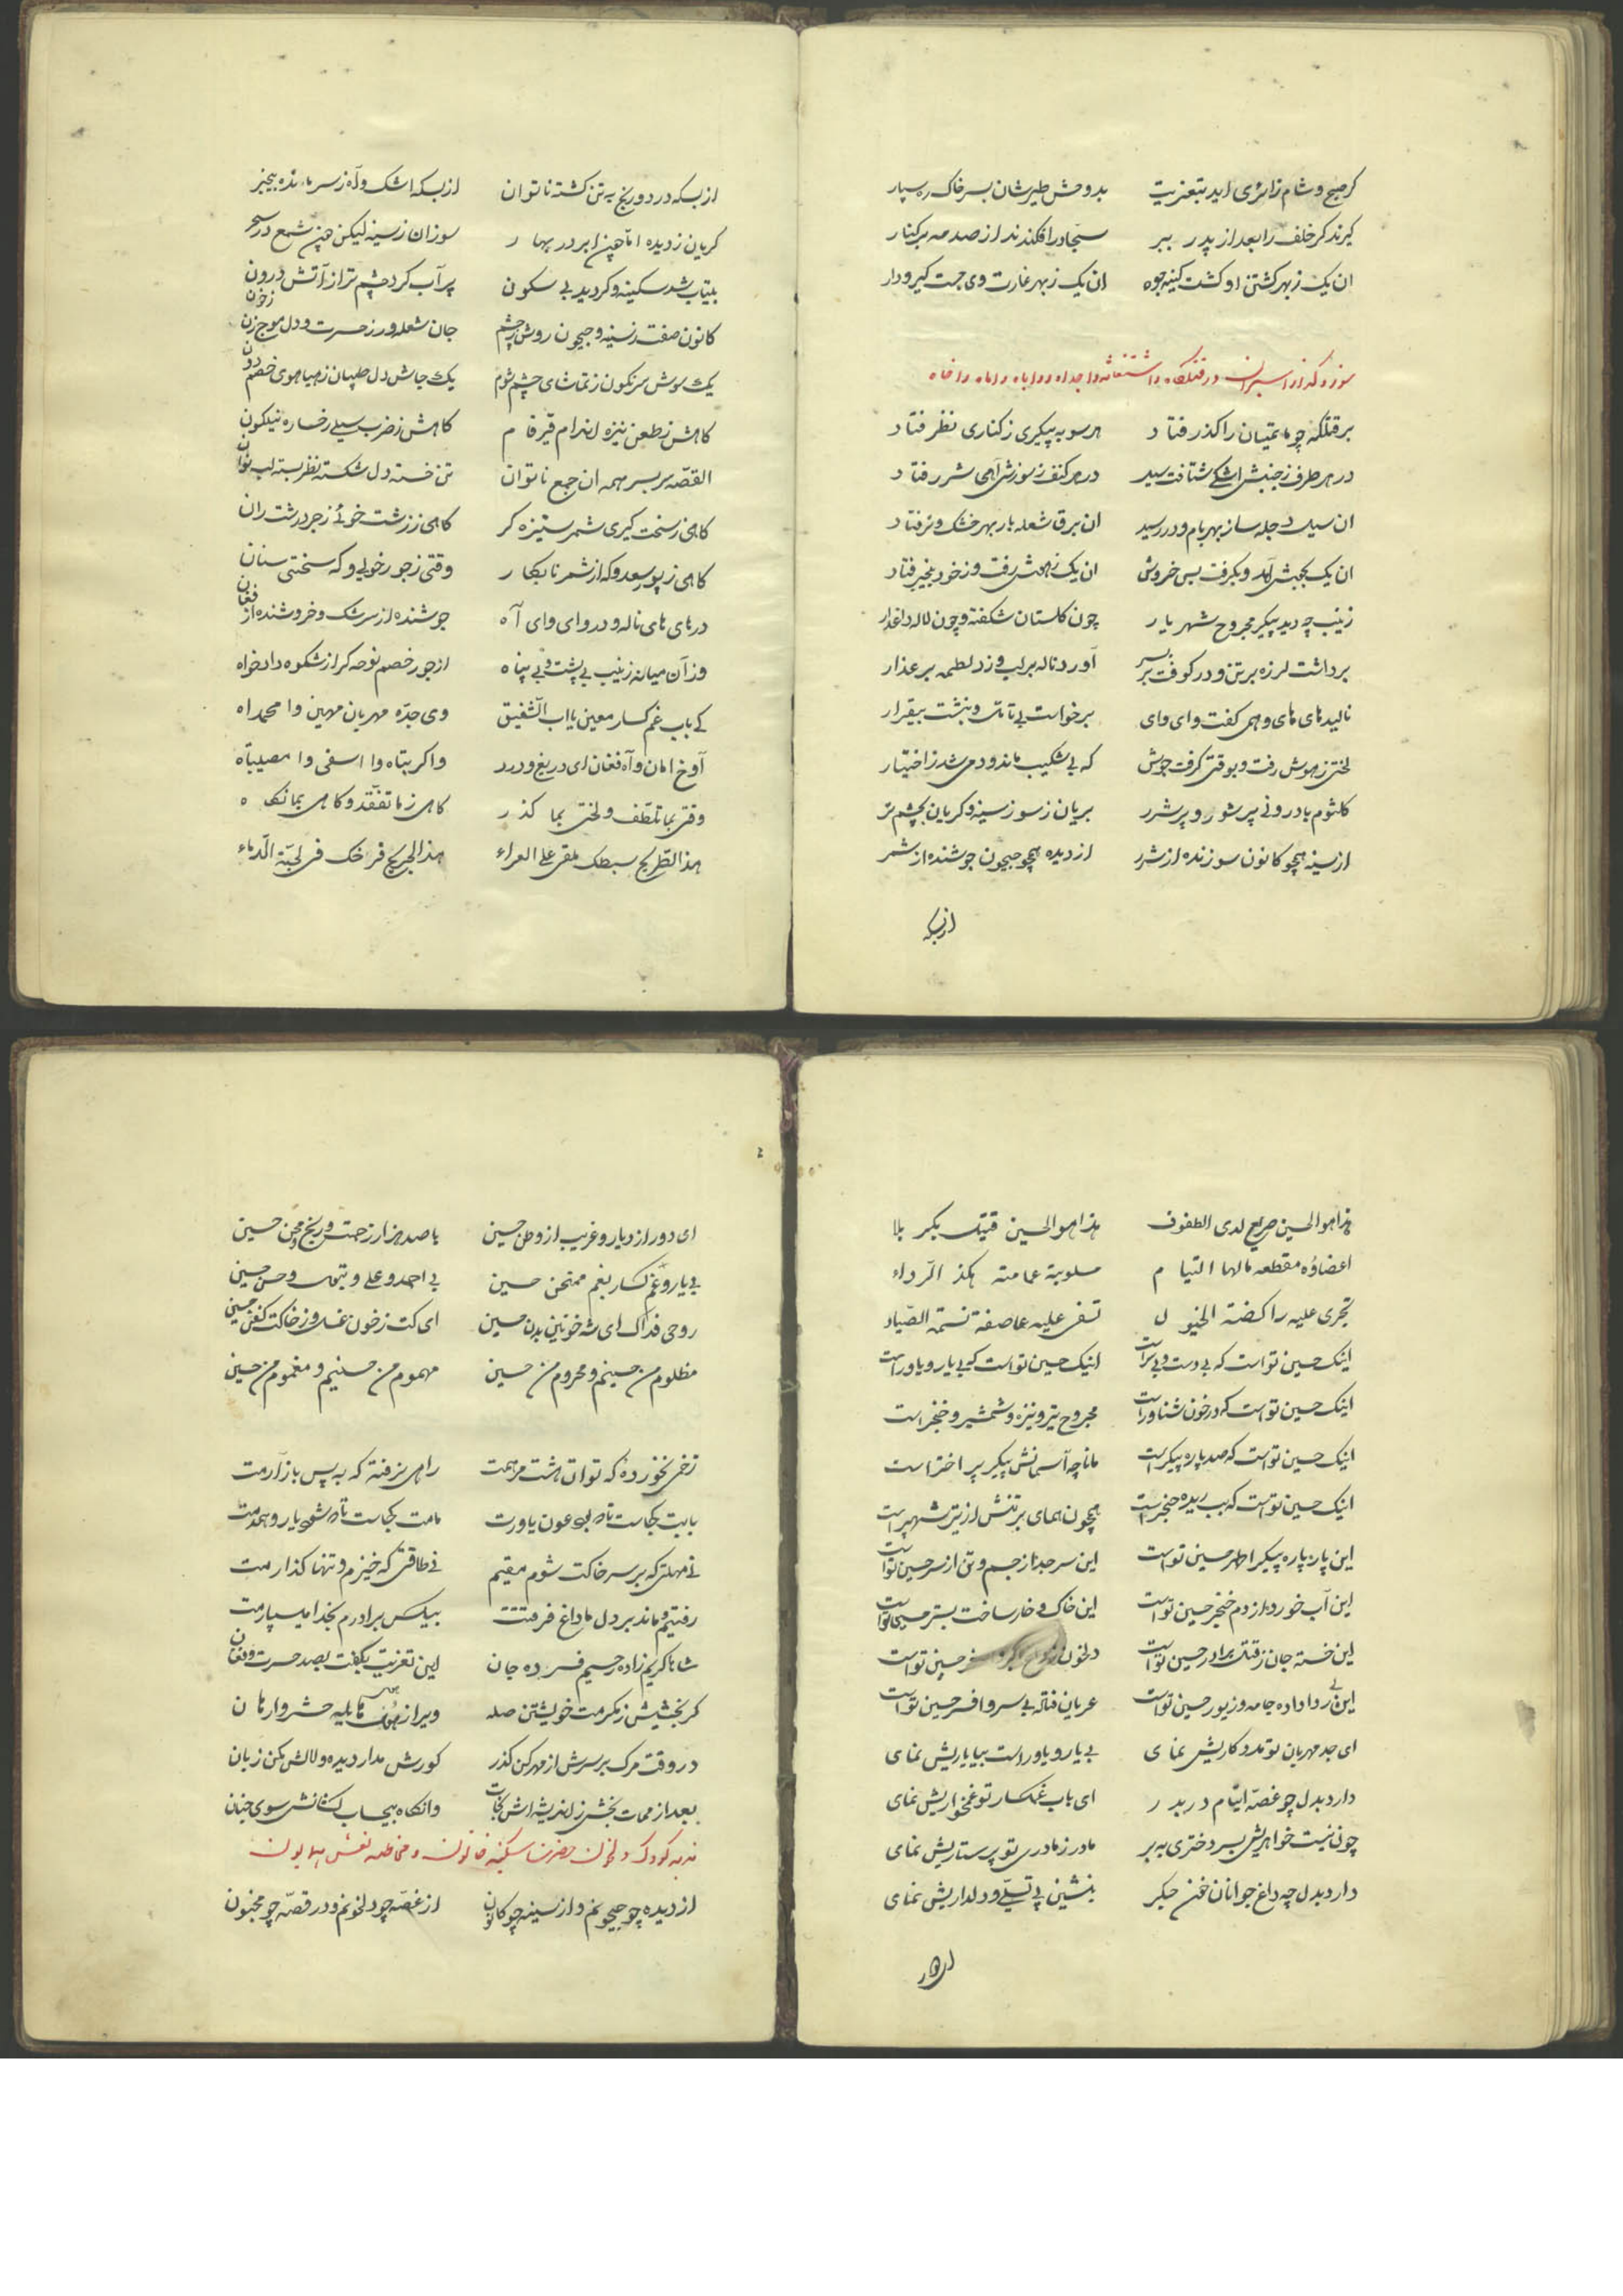 گر صبح و شام زائری اید بتعزیت بد وحش و طیرشان بسر خاک ره سپار
گیرند گر خلف را بعد از پدر ببر سجاد را فکندند از صدمه بر کنار
ان یک ز بهر کشتن او گشت کینه جوه ان یک ز بهر غارت وی جست گیر و دار
سوز و گداز اسیران در قتلگاه و استغاثه وا جداه و وا اباه و اماه وا خاه
بر قتلگه چو ماتمیان را گذر فتاد هر سو به پیکری ز کناری نظر فتاد
در هر طرف ز جنبش اشکی شتافت سیل در هر کنف ز سوزش آهی شرر فتاد
ان سیل دجله ساز بهر بام و در رسید ان برق شعله بار بهر خشک و تر فتاد
ان یک بجنبش آمد و بگرفت بس خروش ان یک ز هوش رفت و ز خود بیخبر فتاد
زینب چه دید پیکر مجروح شهریار چون گلستان شکفته و چون لاله داغدار
برداشت لرزه بر تن و در کوفت بر بسر آورد ناله بر لب و زد لطمه بر عذار
نالید های های و همی گفت وای وای برخواست بی تامل و بنشت بیقرار
لختی ز هوش رفت و بوقتی گرفت جوش که بی شکیب ماند و دمی شد ز اختیار
کلثوم با درونی پر شور و پر شرر بریان ز سوز سینه و گریان بچشم تر
از سینه همچو کانون سوزنده از شرر از دیده همچو جیحون جوشنده از شمر
ازبسکه
ازبسکه درد و رنج به تن گشته ناتوان ازبسکه اشک و آه ز سر مانده بیخبر
گریان ز دیده اما چنین ابر در بهار سوزان ز سینه لیکن چنین شمع در سحر
بیتاب شد سکینه و گردید بی سکون پر آب کرد چشم تر از آتش درون
کانون صفت ز سینه و جیحون روش ز چشم جان شعله ور ز حسرت و دل موج زن ز خون
یک سوش سرنگون ز تماشای چشم شوم یک جاش دل طپان ز هیاهوی خصم دون
گاهش ز طعن نیزه اندام قیرفام گاهش ز ضرب سیلی رخساره نیلگون
القصه سر بسر همه ان جمع ناتوان تن خسته دل شکسته نظر بسته لب نوان
گاهی ز سخت گیری شمر ستیزه گر گاهی ز زشت خوئی زجر درشت ران
گاهی ز پور سعد و که از شمر نابکار وقتی ز جور خولی و که سختی سنان
در های های ناله و در وای وای آه جوشنده از سرشک و خروشنده از فغان
وز آن میانه زینب بی پشت و بی پناه از جور خصم نوحه گر از شکوه دادخواه
کی باب غم گسار معین یا اب الشفیق وی جده مهربان مهین وا محمداه
آوخ امان و آه فغان ای دریغ و درد وا کربتاه وا اسفی وا مصیبتاه
وقتی بما تلطف و لختی بما گذر گاهی ز ما تفقد و گاهی بما نگاه
هذا الطریح سبطک ملقی علی العراء هذا الجریح فرخک فی لجة الدماء
هذا هو الحسین صریع لدی الطفوف هذا هو الحسین قتیل بکربلا
اعضاؤه مقطعه مالها التیام مسلوبة عمامته هکذ الرداء
تجری علیه راکضة الخیول تسفی علیه عاصفة نسمة الصیاد
اینک حسین تواست که بی دست و بی سراست اینک حسین تواست که بی یار و یاوراست
اینک حسین تواست که در خون شناوراست مجروح تیر و نیزه و شمشیر و خنجراست
اینک حسین تواست که صد پاره پیکراست مانا چه آسمانش پیکر پر اختراست
اینک حسین تواست که ببریده حنجراست همچون همای بر تنش از تیر شهپراست
این پاره پاره پیکر اطهر حسین تواست این سر جدا ز جسم و تن از سر حسین تواست
این آب خورد از دم خنجر حسین تواست این خاک و خار ساخت بستر حسین تواست
این خسته جان ز قتل برادر حسین تواست دلخون حسین تواست
این بی ردا داده جامه و زیور حسین تواست عریان فتاده بی سر و افسر حسین تواست
ای جد مهربان تو مددکاریش نمای بی یار و یاور است بیا یاریش نمای
دارد بدل چو غصه ایتام در بدر ای باب غمگسار تو غمخواریش نمای
چون نیست خواهریش بسر دختری به بر مادر ز مادری تو پرستاریش نمای
دارد بدل چه داغ جوانان خون جگر بنشین پی تسلی و دلداریش نمای
ای دور از دیار و غریب از وطن حسین با صد هزار زحمت و رنج و محن حسین
بی یار و غم گسار بغم ممتحن حسین بی احمد و علی و بتول و حسن حسین
روحی فداک ای شه خونین بدن حسین ای کت ز خون غسل و ز خاکت کفن حسین
مظلوم من حسینم و محروم من حسین مهموم من حسینم و مغموم من حسین
زخمی نخوردهٔ که توان هشت مرهمت راهی نرفته که به پس باز آرمت
بابت کجاست تا بعون یاورت مامت کجاست تا شوی یار و همدمت
نی مهلتی که بر سر خاکت شوم مقیم نی طاقتی که خیزم و تنها گذارمت
رفتیم و ماند بر دل ما داغ فرقتت بیکس برادرم بخدا میسپارمت
شاها کریم زاده رحیم فسرده جان این تعزیت بگفت بصد حسرت و فغان
گر بخشیش ز مکرمت خویشتن صله ویرا ز هول هایلیه حشر وارهان
در وقت مرگ بر سرش از مهر کن گذر کورش مدار دیده و لالش مکن زبان
بعد از ممات بخش ز اندیشه اش نجات وانگاه بیحساب کشانش سوی جنان
ندبه کودک دلخون حضرت سکینه خاتون و مخاطبه نعش همایون
از دیده چو جیحونم و از سینه چو کانون از غصه چو دلخونم و در قصه چو مجنون